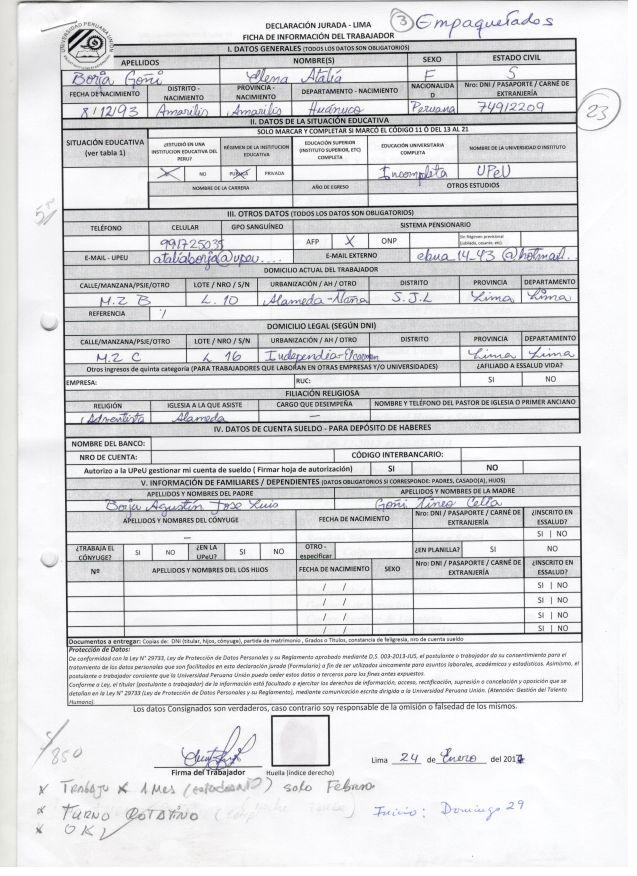 UNIVERSIDAD PERUANA UNIÓN
DECLARACIÓN JURADA - LIMA
FICHA DE INFORMACIÓN DEL TRABAJADOR
3 Empaquetados
23
I. DATOS GENERALES (TODOS LOS DATOS SON OBLIGATORIOS)
APELLIDOS NOMBRE(S) SEXO ESTADO CIVIL
Borja Goñi Elena Atalía F S
FECHA DE NACIMIENTO DISTRITO - NACIMIENTO PROVINCIA - NACIMIENTO DEPARTAMENTO - NACIMIENTO NACIONALIDAD Nro: DNI / PASAPORTE / CARNÉ DE EXTRANJERÍA
8/12/93 Amarilis Amarilis Huánuco Peruana 74912209
II. DATOS DE LA SITUACIÓN EDUCATIVA
SOLO MARCAR Y COMPLETAR SI MARCÓ EL CÓDIGO 11 Ó DEL 13 AL 21
SITUACIÓN EDUCATIVA (ver tabla 1) ¿ESTUDIÓ EN UNA INSTITUCION EDUCATIVA DEL PERU? RÉGIMEN DE LA INSTITUCION EDUCATIVA EDUCACIÓN SUPERIOR (INSTITUTO SUPERIOR, ETC) COMPLETA EDUCACIÓN UNIVERSITARIA COMPLETA NOMBRE DE LA UNIVERSIDAD O INSTITUTO
NO PUBLICA PRIVADA Incompleta UPeU
NOMBRE DE LA CARRERA AÑO DE EGRESO OTROS ESTUDIOS
III. OTROS DATOS (TODOS LOS DATOS SON OBLIGATORIOS)
TELÉFONO CELULAR GPO SANGUÍNEO SISTEMA PENSIONARIO
991725035 AFP X ONP
E-MAIL - UPEU ataliaborja@upeu.... E-MAIL EXTERNO ebua_14_93@hotmail..
DOMICILIO ACTUAL DEL TRABAJADOR
CALLE/MANZANA/PSJE/OTRO LOTE / NRO / S/N URBANIZACIÓN / AH / OTRO DISTRITO PROVINCIA DEPARTAMENTO
M.Z B L. 10 Alameda-Ñaña S.J.L Lima Lima
REFERENCIA
DOMICILIO LEGAL (SEGÚN DNI)
CALLE/MANZANA/PSJE/OTRO LOTE / NRO / S/N URBANIZACIÓN / AH / OTRO DISTRITO PROVINCIA DEPARTAMENTO
M.Z C L 16 Lima Lima
Otros ingresos de quinta categoría (PARA TRABAJADORES QUE LABORAN EN OTRAS EMPRESAS Y/O UNIVERSIDADES) ¿AFILIADO A ESSALUD VIDA?
EMPRESA: RUC: SI NO
FILIACIÓN RELIGIOSA
RELIGIÓN IGLESIA A LA QUE ASISTE CARGO QUE DESEMPEÑA NOMBRE Y TELÉFONO DEL PASTOR DE IGLESIA O PRIMER ANCIANO
Adventista Alameda —
IV. DATOS DE CUENTA SUELDO - PARA DEPÓSITO DE HABERES
NOMBRE DEL BANCO:
NRO DE CUENTA: CÓDIGO INTERBANCARIO:
Autorizo a la UPeU gestionar mi cuenta de sueldo ( Firmar hoja de autorización) SI NO
V. INFORMACIÓN DE FAMILIARES / DEPENDIENTES (DATOS OBLIGATORIOS SI CORRESPONDE: PADRES, CASADO(A), HIJOS)
APELLIDOS Y NOMBRES DEL PADRE APELLIDOS Y NOMBRES DE LA MADRE
Borja Agustin Jose Luis Goñi Tineo Celia
APELLIDOS Y NOMBRES DEL CÓNYUGE FECHA DE NACIMIENTO Nro: DNI / PASAPORTE / CARNÉ DE EXTRANJERÍA ¿INSCRITO EN ESSALUD?
— SI | NO
¿TRABAJA EL CÓNYUGE? SI NO ¿EN LA UPeU? SI NO OTRO - especificar ¿EN PLANILLA? SI NO
Nº APELLIDOS Y NOMBRES DE LOS HIJOS FECHA DE NACIMIENTO SEXO Nro: DNI / PASAPORTE / CARNÉ DE EXTRANJERÍA ¿INSCRITO EN ESSALUD?
/ / SI | NO
/ / SI | NO
/ / SI | NO
/ / SI | NO
Documentos a entregar: Copias de: DNI (titular, hijos, cónyuge), partida de matrimonio , Grados o Títulos, constancia de feligresía, nro de cuenta sueldo
Protección de Datos:
De conformidad con la Ley N° 29733, Ley de Protección de Datos Personales y su Reglamento aprobado mediante D.S. 003-2013-JUS, el postulante o trabajador da su consentimiento para el
tratamiento de los datos personales que son facilitados en esta declaración jurada (Formulario) a fin de ser utilizados únicamente para asuntos laborales, académicos y estadísticos. Asimismo, el
postulante o trabajador consiente que la Universidad Peruana Unión pueda ceder estos datos a terceros para los fines antes expuestos.
Conforme a Ley, el titular (postulante o trabajador) de la información está facultado a ejercitar los derechos de información, acceso, rectificación, supresión o cancelación y oposición que se
detallan en la Ley N° 29733 (Ley de Protección de Datos Personales y su Reglamento), mediante comunicación escrita dirigida a la Universidad Peruana Unión. (Atención: Gestión del Talento
Humano).
Los datos Consignados son verdaderos, caso contrario soy responsable de la omisión o falsedad de los mismos.
Lima 24 de Enero del 2017
Firma del Trabajador Huella (índice derecho)
S/850
x Trabajo x 1 MES (estudiante) solo Febrero
x TURNO ROTATIVO Inicio: Domingo 29
x OK